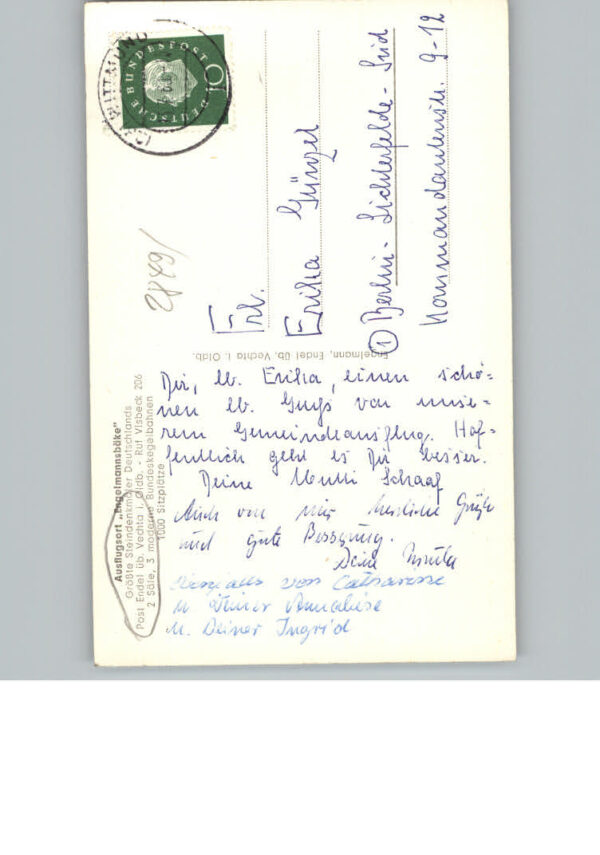 Ausflugsort „Engelmannsbäke"
Größte Steindenkmäler Deutschlands
Post Endel üb. Vechta i. Oldb. - Ruf Visbeck 206
2 Säle, 3 moderne Bundeskegelbahnen
1000 Sitzplätze
Dir, lb. Erika, einen schö=
nen lb. Gruß von unse=
rem Gemeindeausflug. Hof=
fentlich geht es Dir besser.
Deine Mutti Schaaf
Auch von mir herzliche Grüße
und gute Besserung.
Deine
von
u. Deiner Annaliese
u. Deiner Ingrid
Engelmann, Endel üb. Vechta i. Oldb.
DEUTSCHE BUNDESPOST
10
WITTMUND
2849/
Frl.
Erika Günzel
① Berlin-Lichterfelde-Süd
Kommandantenstr. 9-12